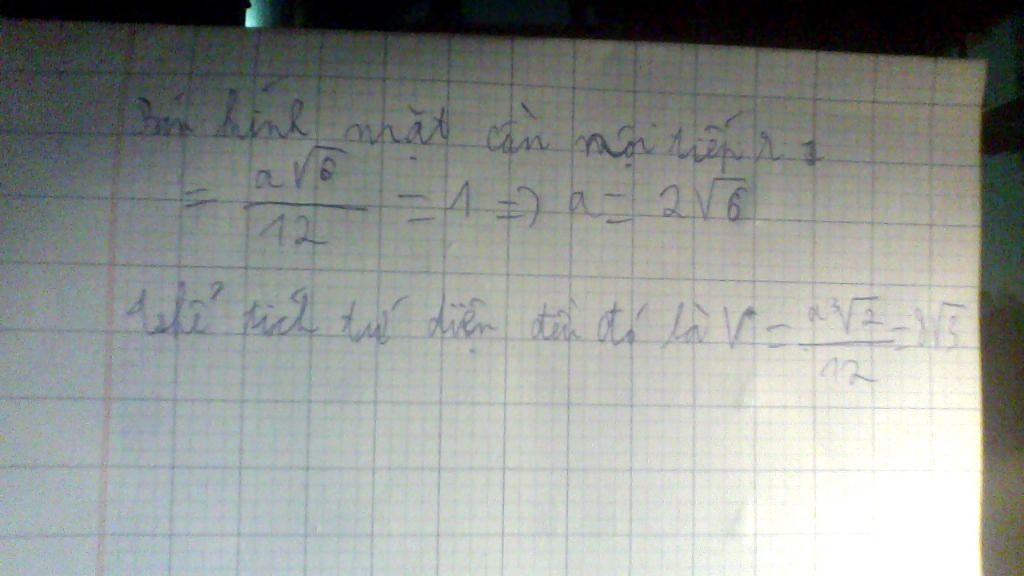 Bán kính mặt cầu nội tiếp r
= a√6/12 = 1 => a = 2√6
thể tích tứ diện đều đó là V = a³√2/12 = 8√3